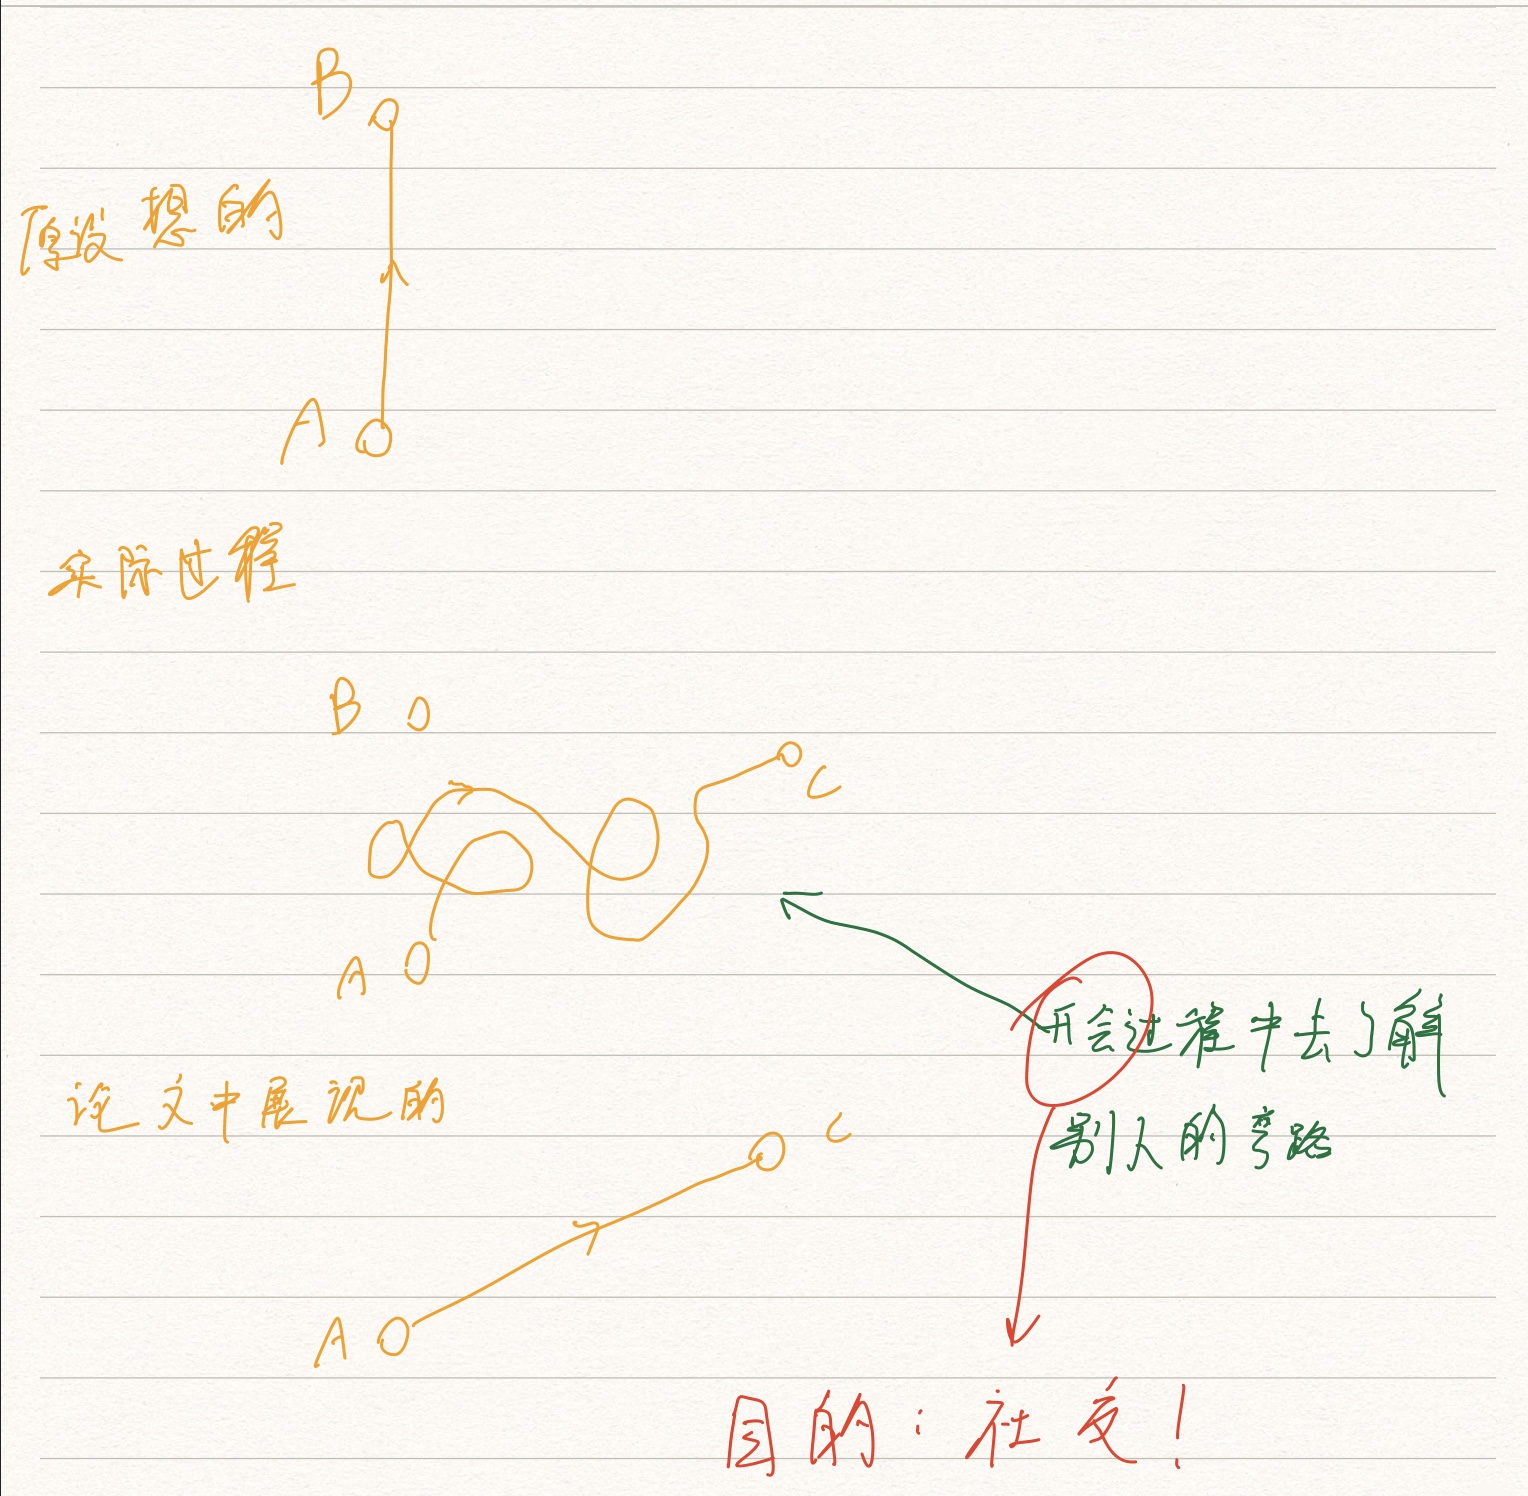 B
原设想的
A
实际过程
B
C
A
开会过程中去了解
别人的弯路
论文中展现的
C
A
目的：社交！